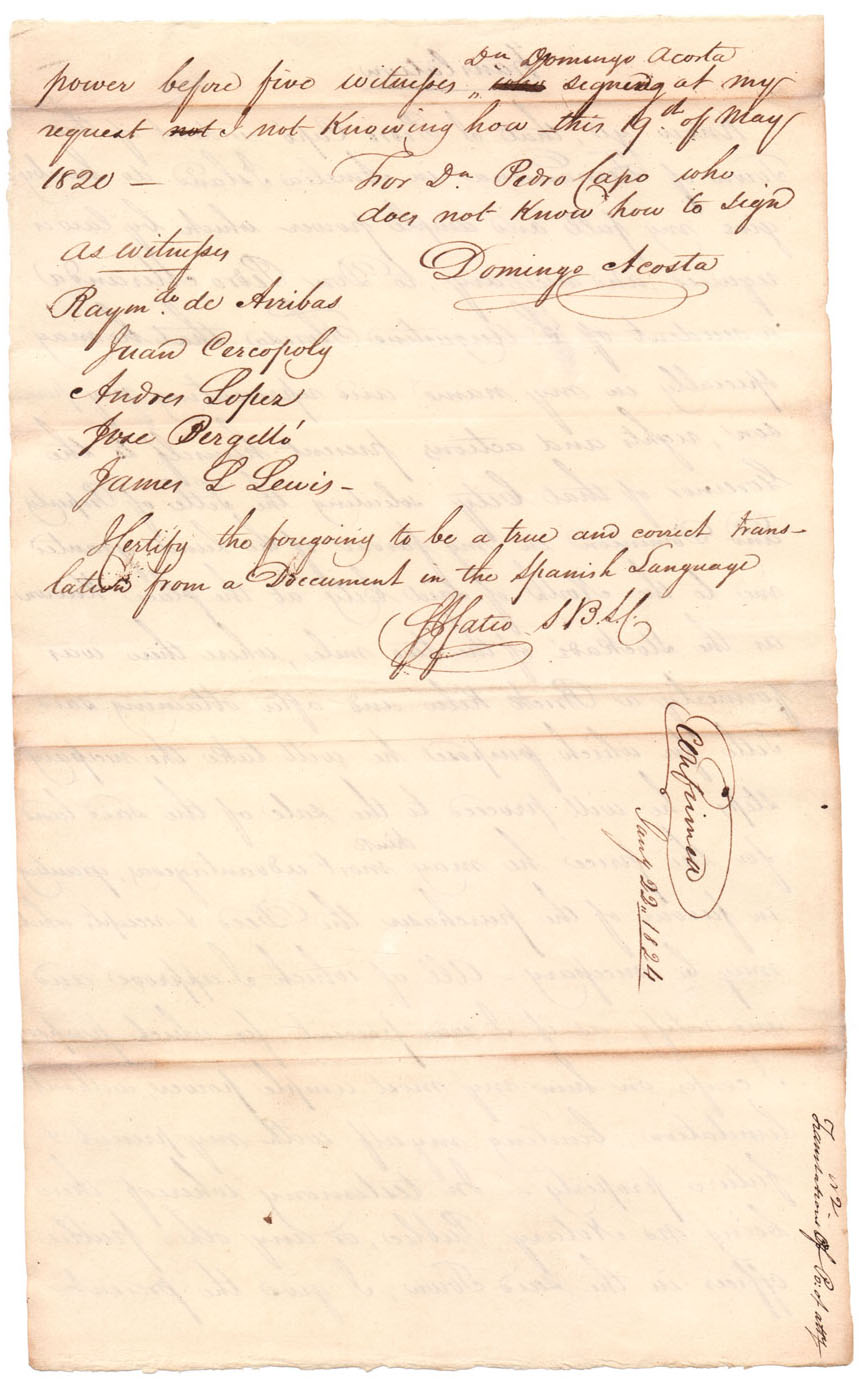 Dn Domingo Acosta
power before five witnesses „ who signing at my
request not I not Knowing how this 19.d of May
1820 —
For Dn Pedro Capo who
does not Know how to sign
Domingo Acosta
as witnesses
Raymdo. de Arribas
Juan Cercopoly
Andres Lopez
Jose Bergelló
James L Lewis —
I Certify the foregoing to be a true and correct trans-
lation from a Document in the Spanish Language
Fatio S B L C.
Confirmed
Jany 22„ 1824
no 2
Translations Of Po: of atty